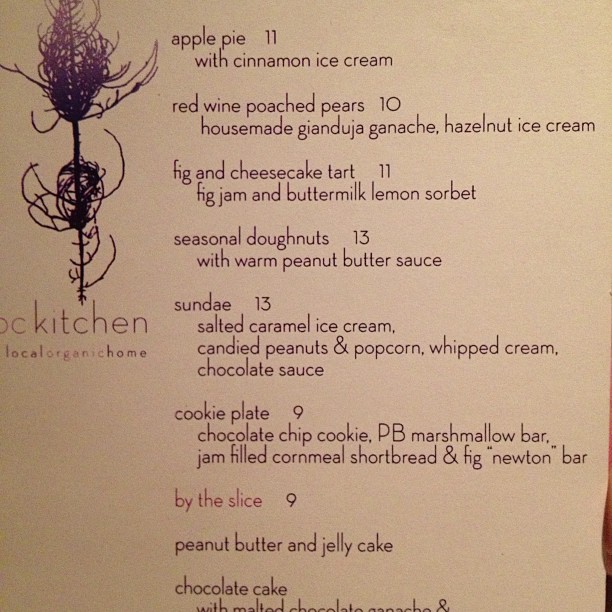 apple pie 11
with cinnamon ice cream
red wine poached pears 10
housemade gianduja ganache, hazelnut ice cream
fig and cheesecake tart 11
fig jam and buttermilk lemon sorbet
seasonal doughnuts 13
with warm peanut butter sauce
sundae 13
salted caramel ice cream,
candied peanuts & popcorn, whipped cream,
chocolate sauce
cookie plate 9
chocolate chip cookie, PB marshmallow bar,
jam filled cornmeal shortbread & fig "newton" bar
by the slice 9
peanut butter and jelly cake
chocolate cake
with malted chocolate ganache &
kitchen
localorganichome